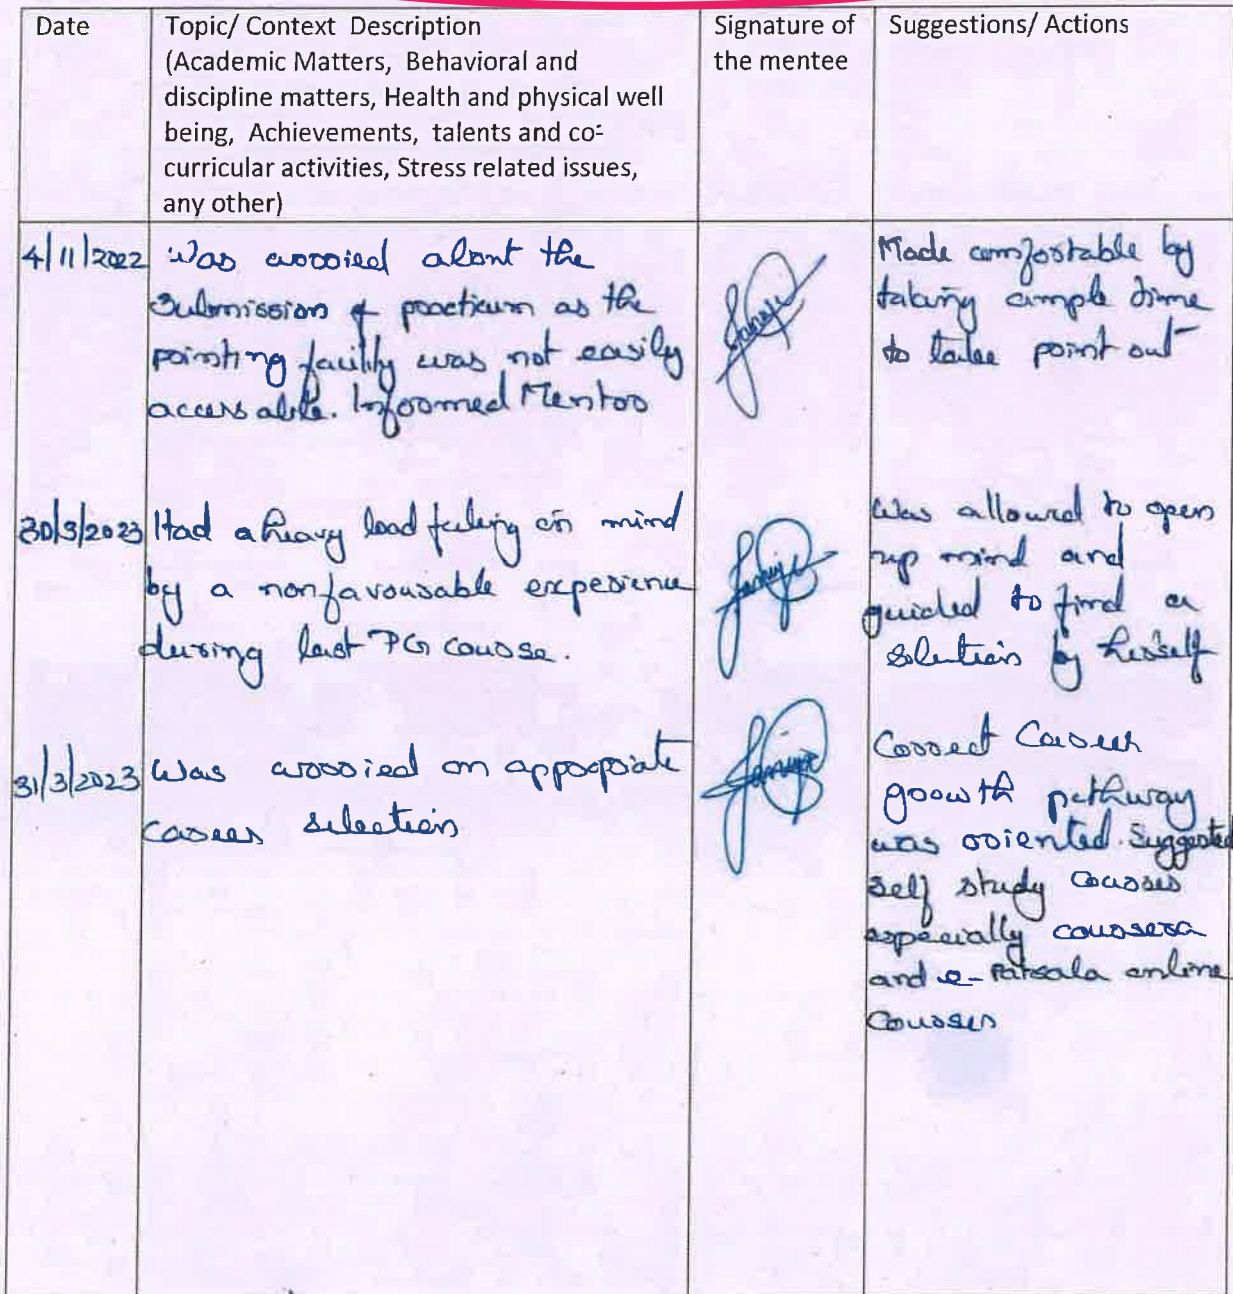 Date
Topic/ Context Description
(Academic Matters, Behavioral and
discipline matters, Health and physical well
being, Achievements, talents and co-
curricular activities, Stress related issues,
any other)
Signature of
the mentee
Suggestions/ Actions
4/11/2022
Was worried about the
Submission of practicum as the
printing facility was not easily
accessable. Informed Mentor
Made comfortable by
taking ample time
to take print out
30/3/2023
Had a heavy load feeling in mind
by a nonfavourable experience
during last PG course.
Was allowed to open
up mind and
guided to find a
solution by herself
31/3/2023
Was worried on appropriate
career selection
Correct Career
growth pathway
was oriented. Suggested
self study courses
especially coursera
and e-Patsala online
Courses